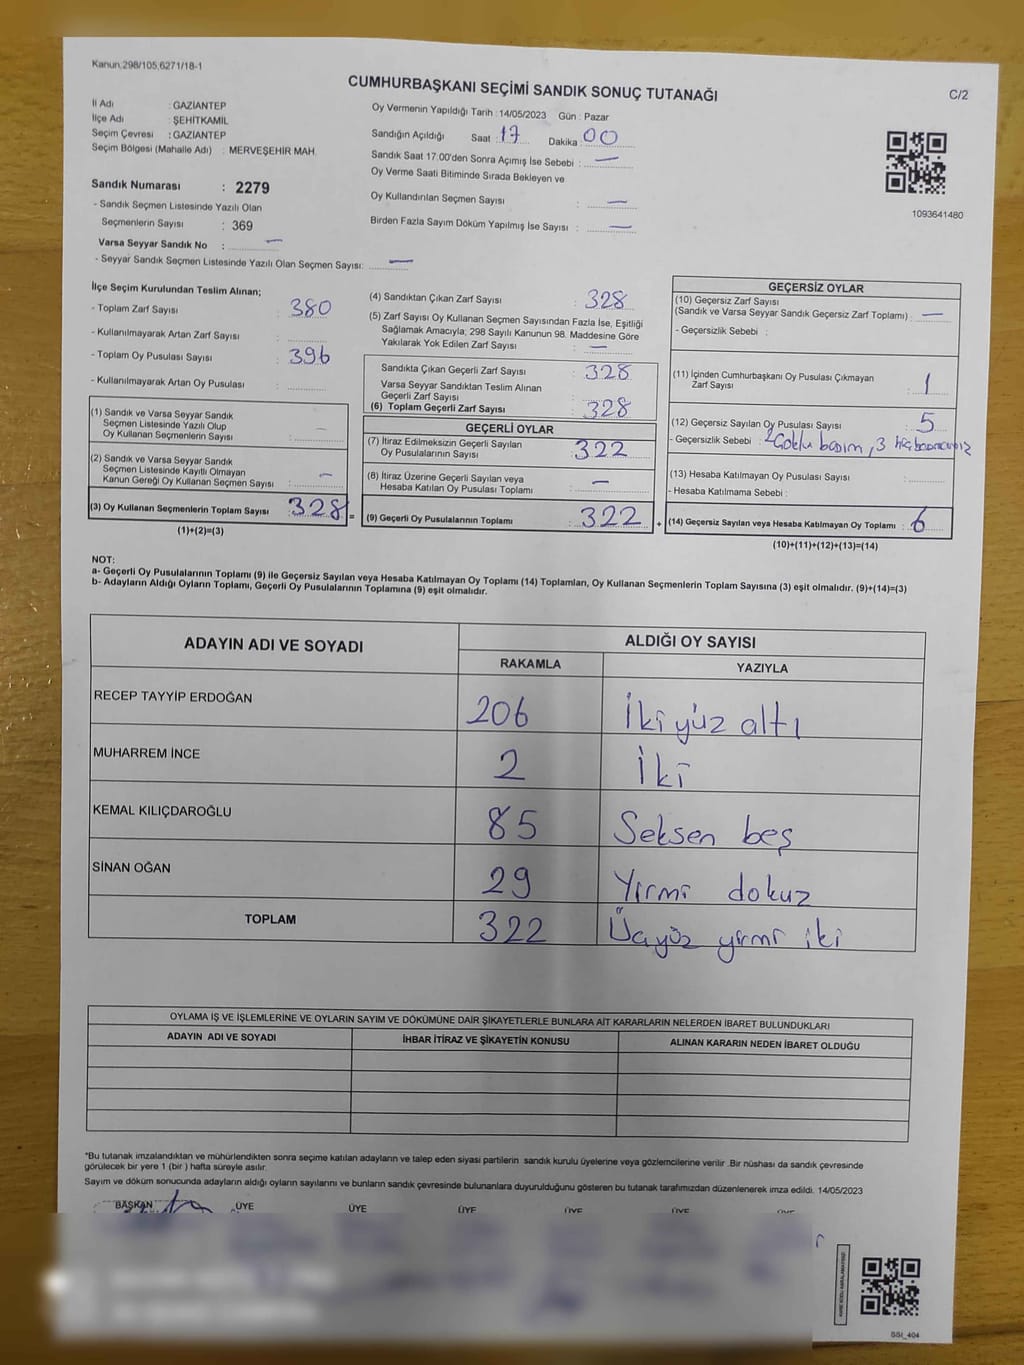 Kanun,298/105,6271/18-1
CUMHURBAŞKANI SEÇİMİ SANDIK SONUÇ TUTANAĞI
C/2
İl Adı : GAZİANTEP
İlçe Adı : ŞEHİTKAMİL
Seçim Çevresi : GAZİANTEP
Seçim Bölgesi (Mahalle Adı) : MERVEŞEHİR MAH.
Sandık Numarası : 2279
- Sandık Seçmen Listesinde Yazılı Olan
Seçmenlerin Sayısı : 369
Varsa Seyyar Sandık No : —
- Seyyar Sandık Seçmen Listesinde Yazılı Olan Seçmen Sayısı: —
Oy Vermenin Yapıldığı Tarih : 14/05/2023 Gün : Pazar
Sandığın Açıldığı Saat : 17 Dakika : 00
Sandık Saat 17.00'den Sonra Açımış İse Sebebi : —
Oy Verme Saati Bitiminde Sırada Bekleyen ve
Oy Kullandırılan Seçmen Sayısı : —
Birden Fazla Sayım Döküm Yapılmış İse Sayısı : —
1093641480
İlçe Seçim Kurulundan Teslim Alınan;
- Toplam Zarf Sayısı : 380
- Kullanılmayarak Artan Zarf Sayısı :
- Toplam Oy Pusulası Sayısı : 396
- Kullanılmayarak Artan Oy Pusulası :
(1) Sandık ve Varsa Seyyar Sandık
Seçmen Listesinde Yazılı Olup
Oy Kullanan Seçmenlerin Sayısı : —
(2) Sandık ve Varsa Seyyar Sandık
Seçmen Listesinde Kayıtlı Olmayan
Kanun Gereği Oy Kullanan Seçmen Sayısı : —
(3) Oy Kullanan Seçmenlerin Toplam Sayısı : 328 =
(1)+(2)=(3)
(4) Sandıktan Çıkan Zarf Sayısı : 328
(5) Zarf Sayısı Oy Kullanan Seçmen Sayısından Fazla İse, Eşitliği
Sağlamak Amacıyla, 298 Sayılı Kanunun 98. Maddesine Göre
Yakılarak Yok Edilen Zarf Sayısı : —
Sandıkta Çıkan Geçerli Zarf Sayısı : 328
Varsa Seyyar Sandıktan Teslim Alınan
Geçerli Zarf Sayısı :
(6) Toplam Geçerli Zarf Sayısı : 328
GEÇERLİ OYLAR
(7) İtiraz Edilmeksizin Geçerli Sayılan
Oy Pusulalarının Sayısı : 322
(8) İtiraz Üzerine Geçerli Sayılan veya
Hesaba Katılan Oy Pusulası Toplamı : —
(9) Geçerli Oy Pusulalarının Toplamı : 322 +
GEÇERSİZ OYLAR
(10) Geçersiz Zarf Sayısı
(Sandık ve Varsa Seyyar Sandık Geçersiz Zarf Toplamı) : —
- Geçersizlik Sebebi :
(11) İçinden Cumhurbaşkanı Oy Pusulası Çıkmayan
Zarf Sayısı : 1
(12) Geçersiz Sayılan Oy Pusulası Sayısı : 5
- Geçersizlik Sebebi : 2 Çoklu basım, 3
(13) Hesaba Katılmayan Oy Pusulası Sayısı :
- Hesaba Katılmama Sebebi :
(14) Geçersiz Sayılan veya Hesaba Katılmayan Oy Toplamı : 6
(10)+(11)+(12)+(13)=(14)
NOT:
a- Geçerli Oy Pusulalarının Toplamı (9) ile Geçersiz Sayılan veya Hesaba Katılmayan Oy Toplamı (14) Toplamları, Oy Kullanan Seçmenlerin Toplam Sayısına (3) eşit olmalıdır. (9)+(14)=(3)
b- Adayların Aldığı Oyların Toplamı, Geçerli Oy Pusulalarının Toplamına (9) eşit olmalıdır.
ADAYIN ADI VE SOYADI ALDIĞI OY SAYISI
RAKAMLA YAZIYLA
RECEP TAYYİP ERDOĞAN 206 İki yüz altı
MUHARREM İNCE 2 İki
KEMAL KILIÇDAROĞLU 85 Seksen beş
SİNAN OĞAN 29 Yirmi dokuz
TOPLAM 322 Üçyüz yirmi iki
OYLAMA İŞ VE İŞLEMLERİNE VE OYLARIN SAYIM VE DÖKÜMÜNE DAİR ŞİKAYETLERLE BUNLARA AİT KARARLARIN NELERDEN İBARET BULUNDUKLARI
ADAYIN ADI VE SOYADI İHBAR İTİRAZ VE ŞİKAYETİN KONUSU ALINAN KARARIN NEDEN İBARET OLDUĞU
*Bu tutanak imzalandıktan ve mühürlendikten sonra seçime katılan adayların ve talep eden siyasi partilerin sandık kurulu üyelerine veya gözlemcilerine verilir .Bir nüshası da sandık çevresinde
görülecek bir yere 1 (bir ) hafta süreyle asılır.
Sayım ve döküm sonucunda adayların aldığı oyların sayılarını ve bunların sandık çevresinde bulunanlara duyurulduğunu gösteren bu tutanak tarafımızdan düzenlenerek imza edildi. 14/05/2023
BAŞKAN ÜYE ÜYE ÜYE ÜYE ÜYE ÜYE
SSI_404